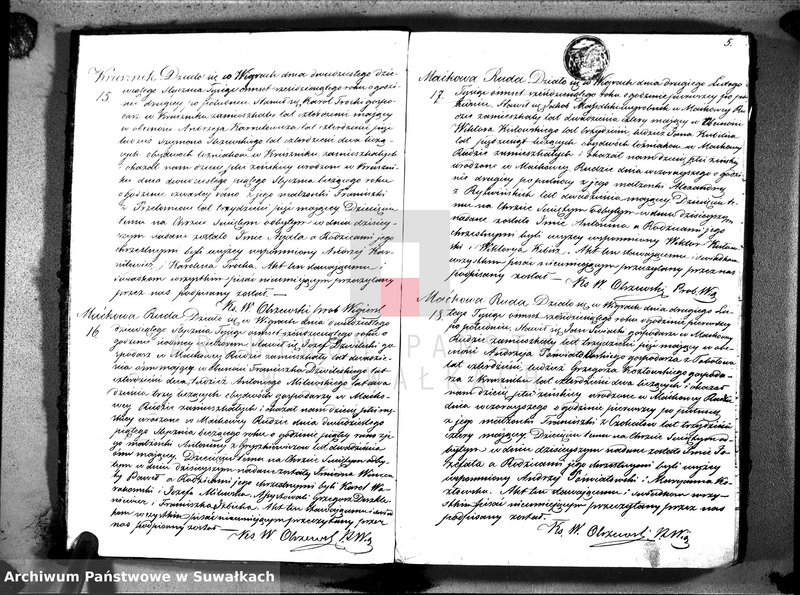 Krusznik Działo się w Wigrach dnia dwudziestego dzie-
15 wiątego Stycznia Tysiąc ośmset sześćdziesiątego roku o godzi-
nie drugiej po południu. Stawił się Karol Trocki gospo-
darz w Kruszniku zamieszkały lat czterdzieści mający
w obecności Andrzeja Karnilewicza lat czterdzieści pięć
tudzież Szymona lat czterdzieści dwa liczą-
cych obydwóch w Kruszniku zamieszkałych
i okazał nam dziecię płci żeńskiej urodzone w Krusz-
niku dnia dwudziestego Stycznia bieżącego roku
o godzinie czwartej rano z jego małżonki Franciszki
z lat trzydzieści pięć mającej Dziecięciu
temu na Chrzcie Świętym odbytym w dniu dzisiej-
szym nadane zostało Imię Agata a Rodzicami jego
chrzestnymi byli wyżej wspomniony Andrzej Kar-
nilewicz i Karolina Trocka. Akt ten stawającemu i
świadkom wszystkim pisać nieumiejącym przeczytany
przez nas podpisany został.—
Ks. W. Olszewski prob. Wigierski
Maćkowa Ruda Działo się w Wigrach dnia dwudziestego
16 dziewiątego Stycznia Tysiąc ośmset sześćdziesiątego roku o
godzinie wieczorem. Stawił się Józef Dzwilewski go-
spodarz w Maćkowej Rudzie zamieszkały lat dwadzie-
ścia ośm mający w obecności Franciszka Dzwilewskiego lat
czterdzieści dwa tudzież Antoniego Milewskiego lat dwa-
dzieścia trzy liczących obydwóch gospodarzy w Maćko-
wej Rudzie zamieszkałych i okazał nam dziecię płci mę-
skiej urodzone w Maćkowej Rudzie dnia dwudziestego
piątego Stycznia bieżącego roku o godzinie piątej rano z je-
go małżonki Antoniny z lat dwadzieścia
ośm mającej. Dziecięciu temu na Chrzcie Świętym odby-
tym w dniu dzisiejszym nadane zostały Imiona Wincen-
ty Paweł a Rodzicami jego chrzestnymi byli Karol
i Józefa Milewska. Assystowali Grzegorz
i Franciszka Akt ten stawającemu i świad-
kom wszystkim pisać nieumiejącym przeczytany przez
nas podpisany został.—
Ks W. Olszewski P.Wig
5.
Maćkowa Ruda Działo się w Wigrach dnia drugiego Lutego
17 Tysiąc ośmset sześćdziesiątego roku o godzinie pierwszej po po-
łudniu. Stawił się Jakób wyrobnik w Maćkowej Ru-
dzie zamieszkały lat dwadzieścia cztery mający w obecności
Wiktora lat trzydzieści, tudzież Jana
lat pięćdziesiąt liczących obydwóch w Maćkowej
Rudzie zamieszkałych i okazał nam dziecię płci żeńskiej
urodzone w Maćkowej Rudzie dnia wczorajszego o godzi-
nie drugiej po północy z jego małżonki Alexandry
z lat dwadzieścia mającej Dziecięciu te-
mu na Chrzcie Świętym odbytym w dniu dzisiejszym
nadane zostało Imię Antonina a Rodzicami jego
chrzestnymi byli wyżej wspomniony Wiktor
i Wiktorya Akt ten stawającemu i świadkom
wszystkim pisać nieumiejącym przeczytany przez nas
podpisany został —
Ks W. Olszewski Prob. Wig
Maćkowa Ruda Działo się w Wigrach dnia drugiego Lu-
18. tego Tysiąc ośmset sześćdziesiątego roku o godzinie pierwszej
po południu. Stawił się Jan gospodarz w Maćkowej
Rudzie zamieszkały lat trzydzieści pięć mający w obe-
cności Andrzeja gospodarza z
lat czterdzieści, tudzież Grzegorza Kozłowskiego gospoda-
rza z Krusznika lat czterdzieści dwa liczących i okazał
nam dziecię płci żeńskiej urodzone w Maćkowej Rudzie
dnia wczorajszego o godzinie pierwszej po północy
z jego małżonki Franciszki z lat trzydzieści
cztery mającej. Dziecięciu temu na Chrzcie Świętym od-
bytym w dniu dzisiejszym nadane zostało Imię
a Rodzicami jego chrzestnymi byli wyżej
wspomniony Andrzej i Maryanna Ko-
złowska. Akt ten stawającemu i świadkom wszy-
stkim pisać nieumiejącym przeczytany przez nas
podpisany został.—
Ks. W. Olszewski P.Wig
Archiwum Państwowe w Suwałkach